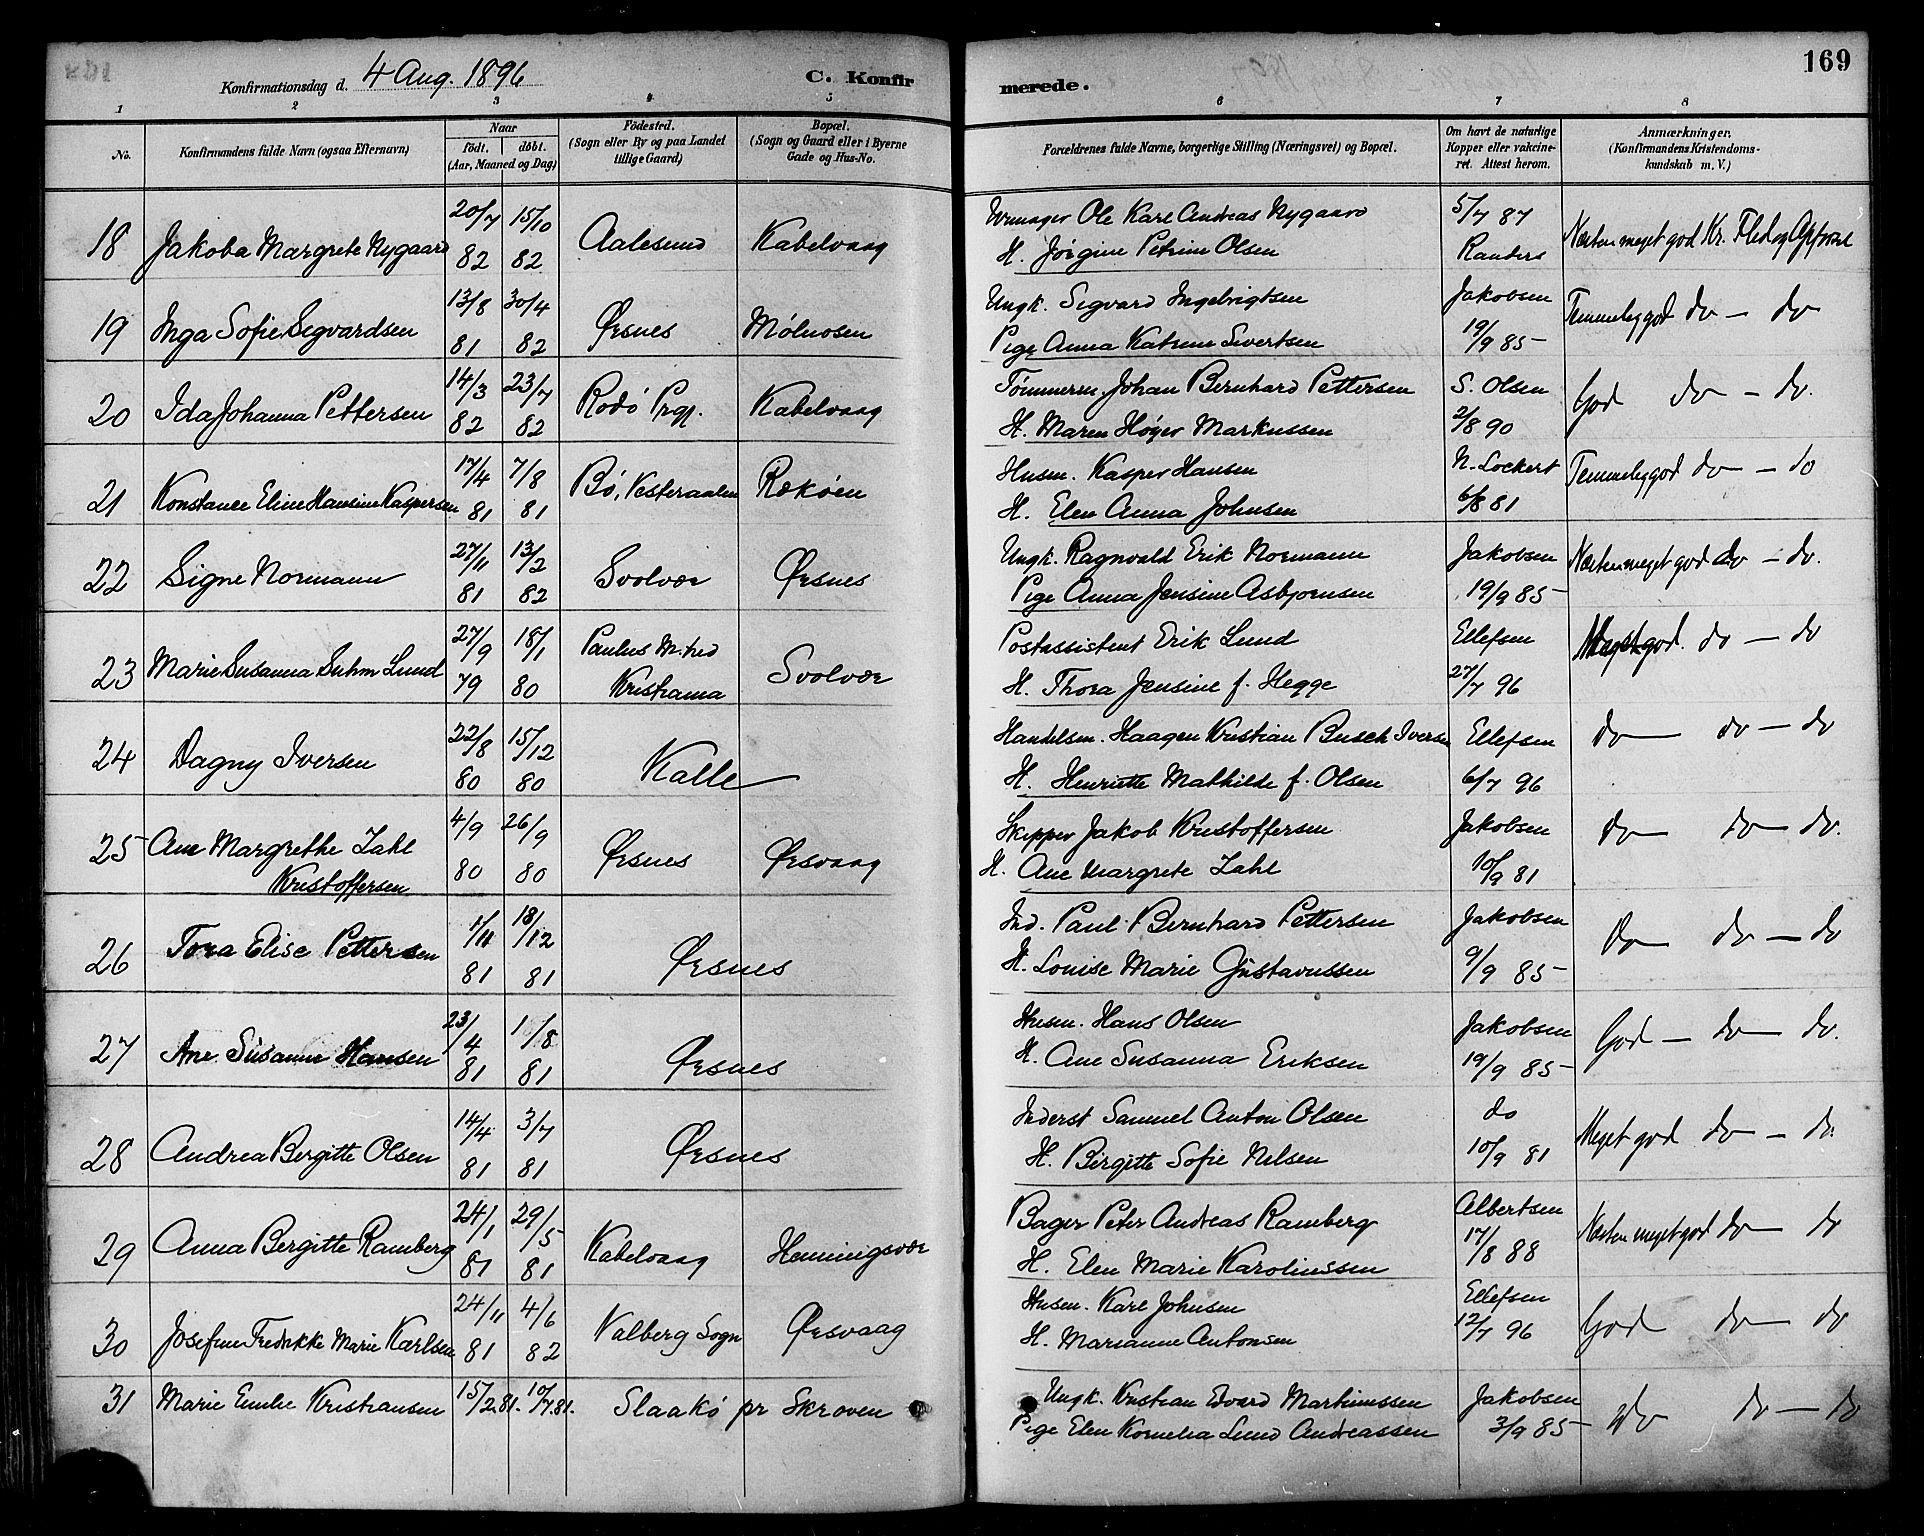 169
Konfirmationsdag d. 4 Aug. 1896
C. Konfirmerede.
1 2 3 4 5 6 7 8
No. Konfirmandens fulde Navn (ogsaa Efternavn) Naar födt. döbt. (Aar, Maaned og Dag) Födested. (Sogn eller By og paa Landet tillige Gaard) Bopæl. (Sogn og Gaard eller i Byerne Gade og Hus-No. Forældrenes fulde Navne, borgerlige Stilling (Næringsvei) og Bopæl. Om havt de naturlige Kopper eller vakcineret. Attest herom. Anmærkninger. (Konfirmandens Kristendomskundskab m. V.)
18 Jakoba Margrete Nygaard 20/7 82 15/10 82 Aalesund Kabelvaag
Ole Karl Andreas Nygaard 5/7 87 Næsten meget god Kr. Flid og Opførsel
H. Jørgine Petrine Olsen Randers
19 Inga Sofie Segvardsen 13/8 81 30/4 82 Ørsnes Mølnosen
Ungk. Segvard Ingebrigtsen Jakobsen Temmelig god do - do
Pige Anna Katrine Sivertsen 19/9 85
20 Ida Johanna Pettersen 14/3 82 23/7 82 Rodø Prgj. Kabelvaag
Tømmerm. Johan Bernhard Pettersen S. Olsen God do - do.
H. Maren Høger Markussen 2/8 90
21 Konstance Eline Hansine Kaspersen 17/4 81 7/8 81 Bø, Vesteraalen Rækøen
Husm. Kasper Hansen N. Lockert Temmelig god do - do
H. Elen Anna Johnsen 6/8 81
22 Signe Normann 27/11 81 13/2 82 Svolvær Ørsnes
Ungk. Ragnvald Erik Normann Jakobsen Næsten meget god do - do.
Pige Anna Jensine Asbjørnsen 19/9 85
23 Marie Susanna Suhm Lund 27/9 79 18/1 80 Paulus M.hed Kristiania Svolvær
Postassistent Erik Lund Ellefsen Meget god. do - do
H. Thora Jensine f. Hegge 27/7 96
24 Dagny Iversen 22/8 80 15/12 80 Kalle
Handelsm. Haagen Kristian Busch Iversen Ellefsen do do - do
H. Henriette Mathilde f. Olsen 6/7 96
25 Ane Margrethe Zahl Kristoffersen 4/9 80 26/9 80 Ørsnes Ørsvaag
Skipper Jakob Kristoffersen Jakobsen do do - do.
H. Ane Margrete Zahl 10/9 81
26 Tora Elise Pettersen 1/11 81 18/12 81 Ørsnes
Ind. Paul Bernhard Pettersen Jakobsen do do - do
H. Louise Marie Gustavussen 9/9 85
27 Ane Susanne Hansen 23/4 81 1/8 81 Ørsnes
Husm. Hans Olsen Jakobsen God - do - do.
H. Ane Susanna Eriksen 19/9 85
28 Andrea Bergitte Olsen 14/4 81 3/7 81 Ørsnes
Inderst Samuel Anton Olsen do Meget god do - do.
H. Birgitte Sofie Nilsen 10/9 81
29 Anna Bergitte Ramberg 24/1 81 29/5 81 Kabelvaag Henningsvær
Bager Peter Andreas Ramberg Albertsen Næsten meget god do - do
H. Elen Marie Karolinssen 17/8 88
30 Josefine Fredrikke Marie Karlsen 24/11 81 4/6 82 Valberg Sogn Ørsvaag
Husm. Karl Johnsen Ellefsen God do - do
H. Marianne Antonsen 12/7 96
31 Marie Emilie Kristiansen 15/2.81. 10/7.81. Slaakø pr Skroven
Ungk. Kristian Edvard Martinussen Jakobsen do do - do
Pige Elen Kornelia Lund Andreassen 3/9 85